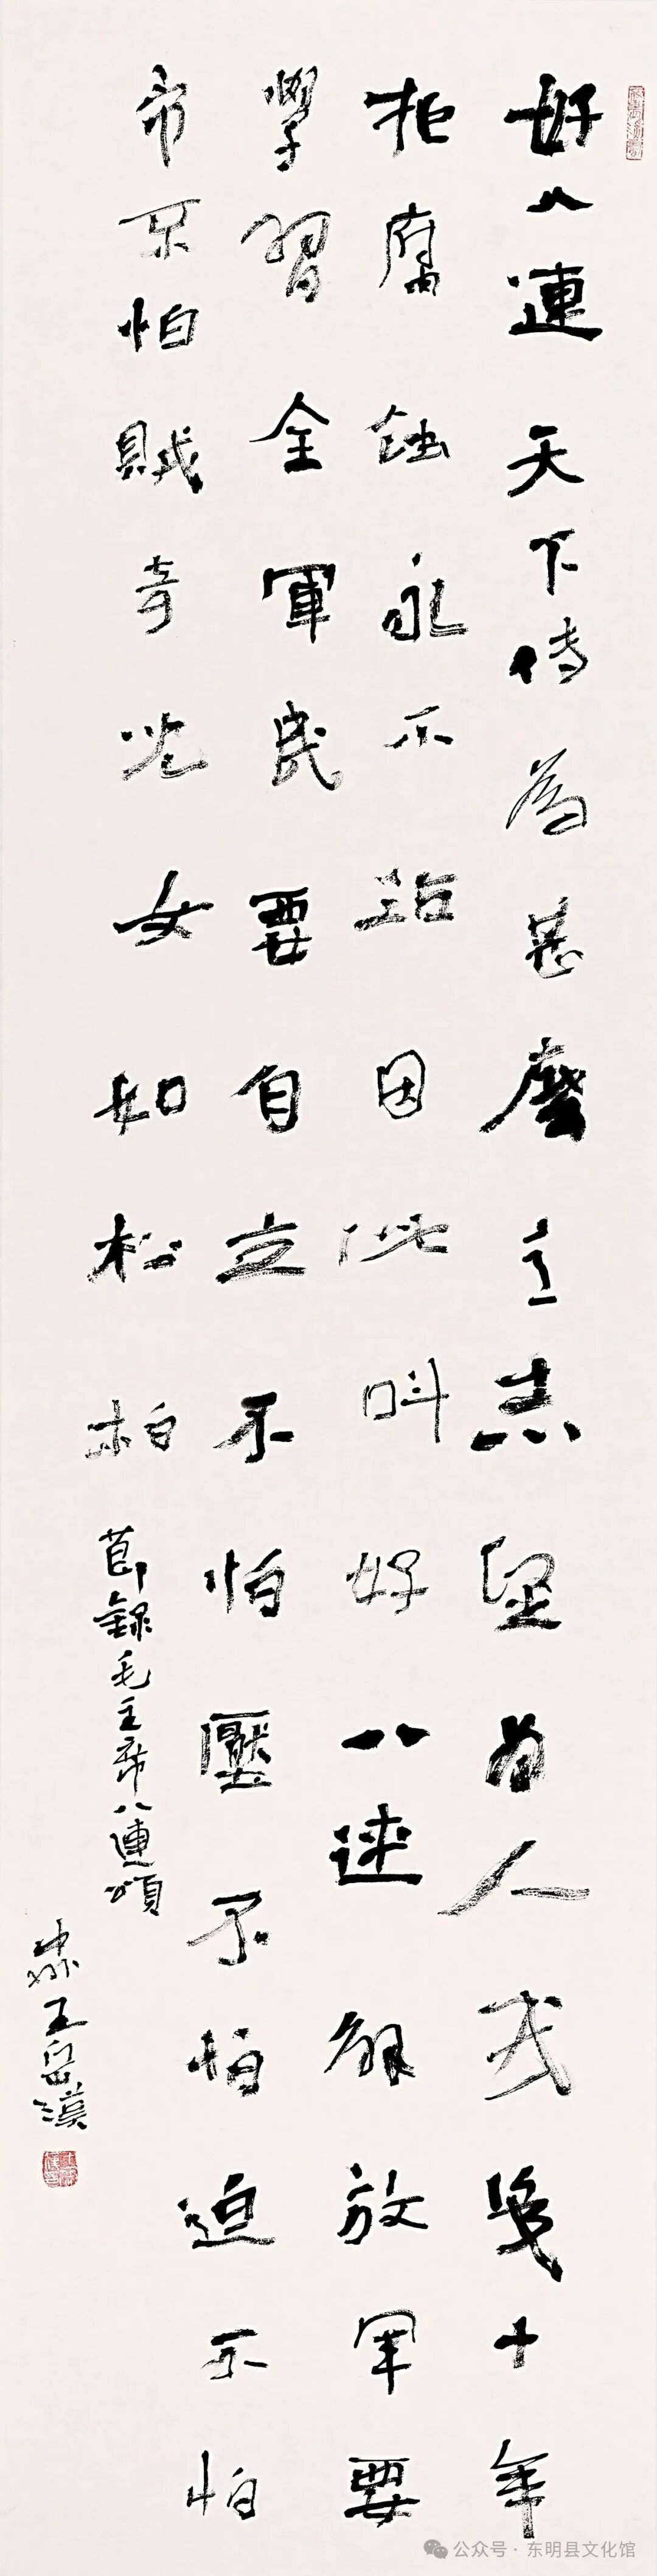 好八連天下傳為甚麼意志堅為人民幾十年
拒腐蝕永不沾因此叫好八連解放軍要
學習全軍民要自立不怕壓不怕迫不怕
帝不怕賊奇兒女如松柏
節録毛主席八連頌
王岳漢
公众号 · 东明县文化馆